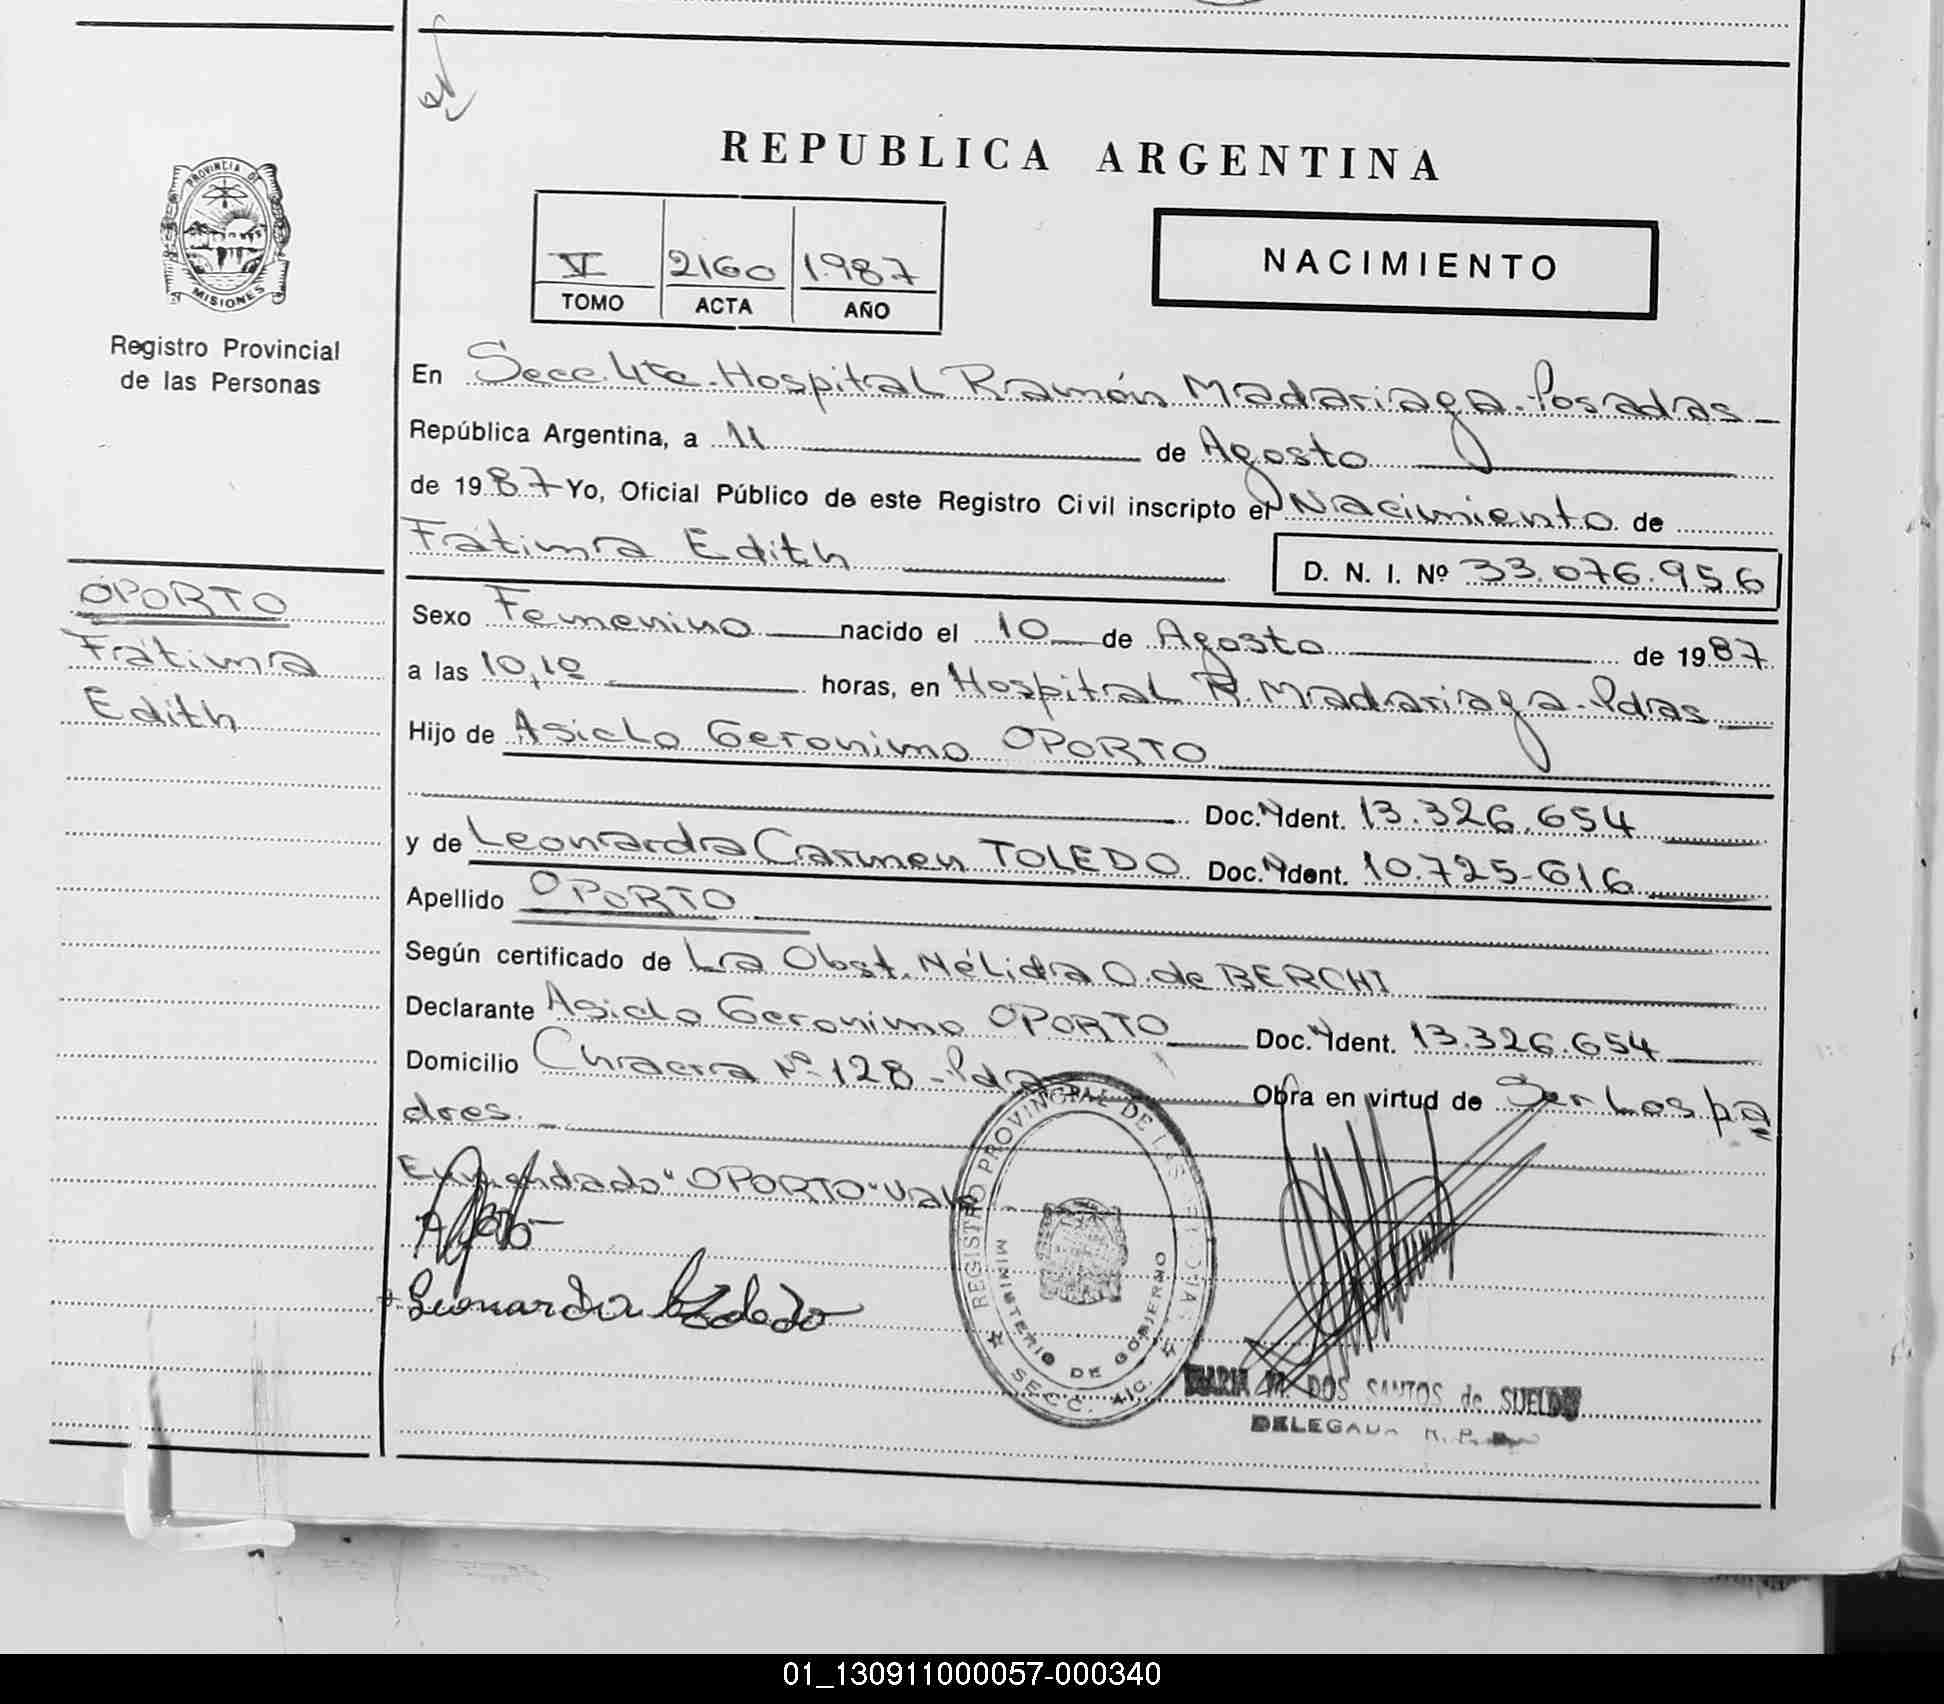 REPUBLICA ARGENTINA
PROVINCIA DE
MISIONES
Registro Provincial
de las Personas
V 2160 1987
TOMO ACTA AÑO
NACIMIENTO
En Secc. 4ta. Hospital Ramón Madariaga. Posadas
República Argentina, a 11 de Agosto
de 1987 Yo, Oficial Público de este Registro Civil inscripto el Nacimiento de
Fátima Edith D. N. I. Nº 33.076.956
OPORTO
Fátima
Edith
Sexo Femenino nacido el 10 de Agosto de 1987
a las 10,10 horas, en Hospital R. Madariaga. Pdas
Hijo de Asiclo Geronimo OPORTO
Doc. Ident. 13.326.654
y de Leonarda Carmen TOLEDO Doc. Ident. 10.725.616
Apellido OPORTO
Según certificado de La Obst. Nélida O. de BERCHI
Declarante Asiclo Geronimo OPORTO Doc. Ident. 13.326.654
Domicilio Chacra Nº 128 - Pdas Obra en virtud de Ser Los pa
dres.
Enmendado "OPORTO" Vale
Leonarda Toledo
REGISTRO PROVINCIAL DE LAS PERSONAS
MINISTERIO DE GOBIERNO
SECC. 4ta.
MARIA M. DOS SANTOS de SUELDO
DELEGADA R. P.
01_130911000057-000340